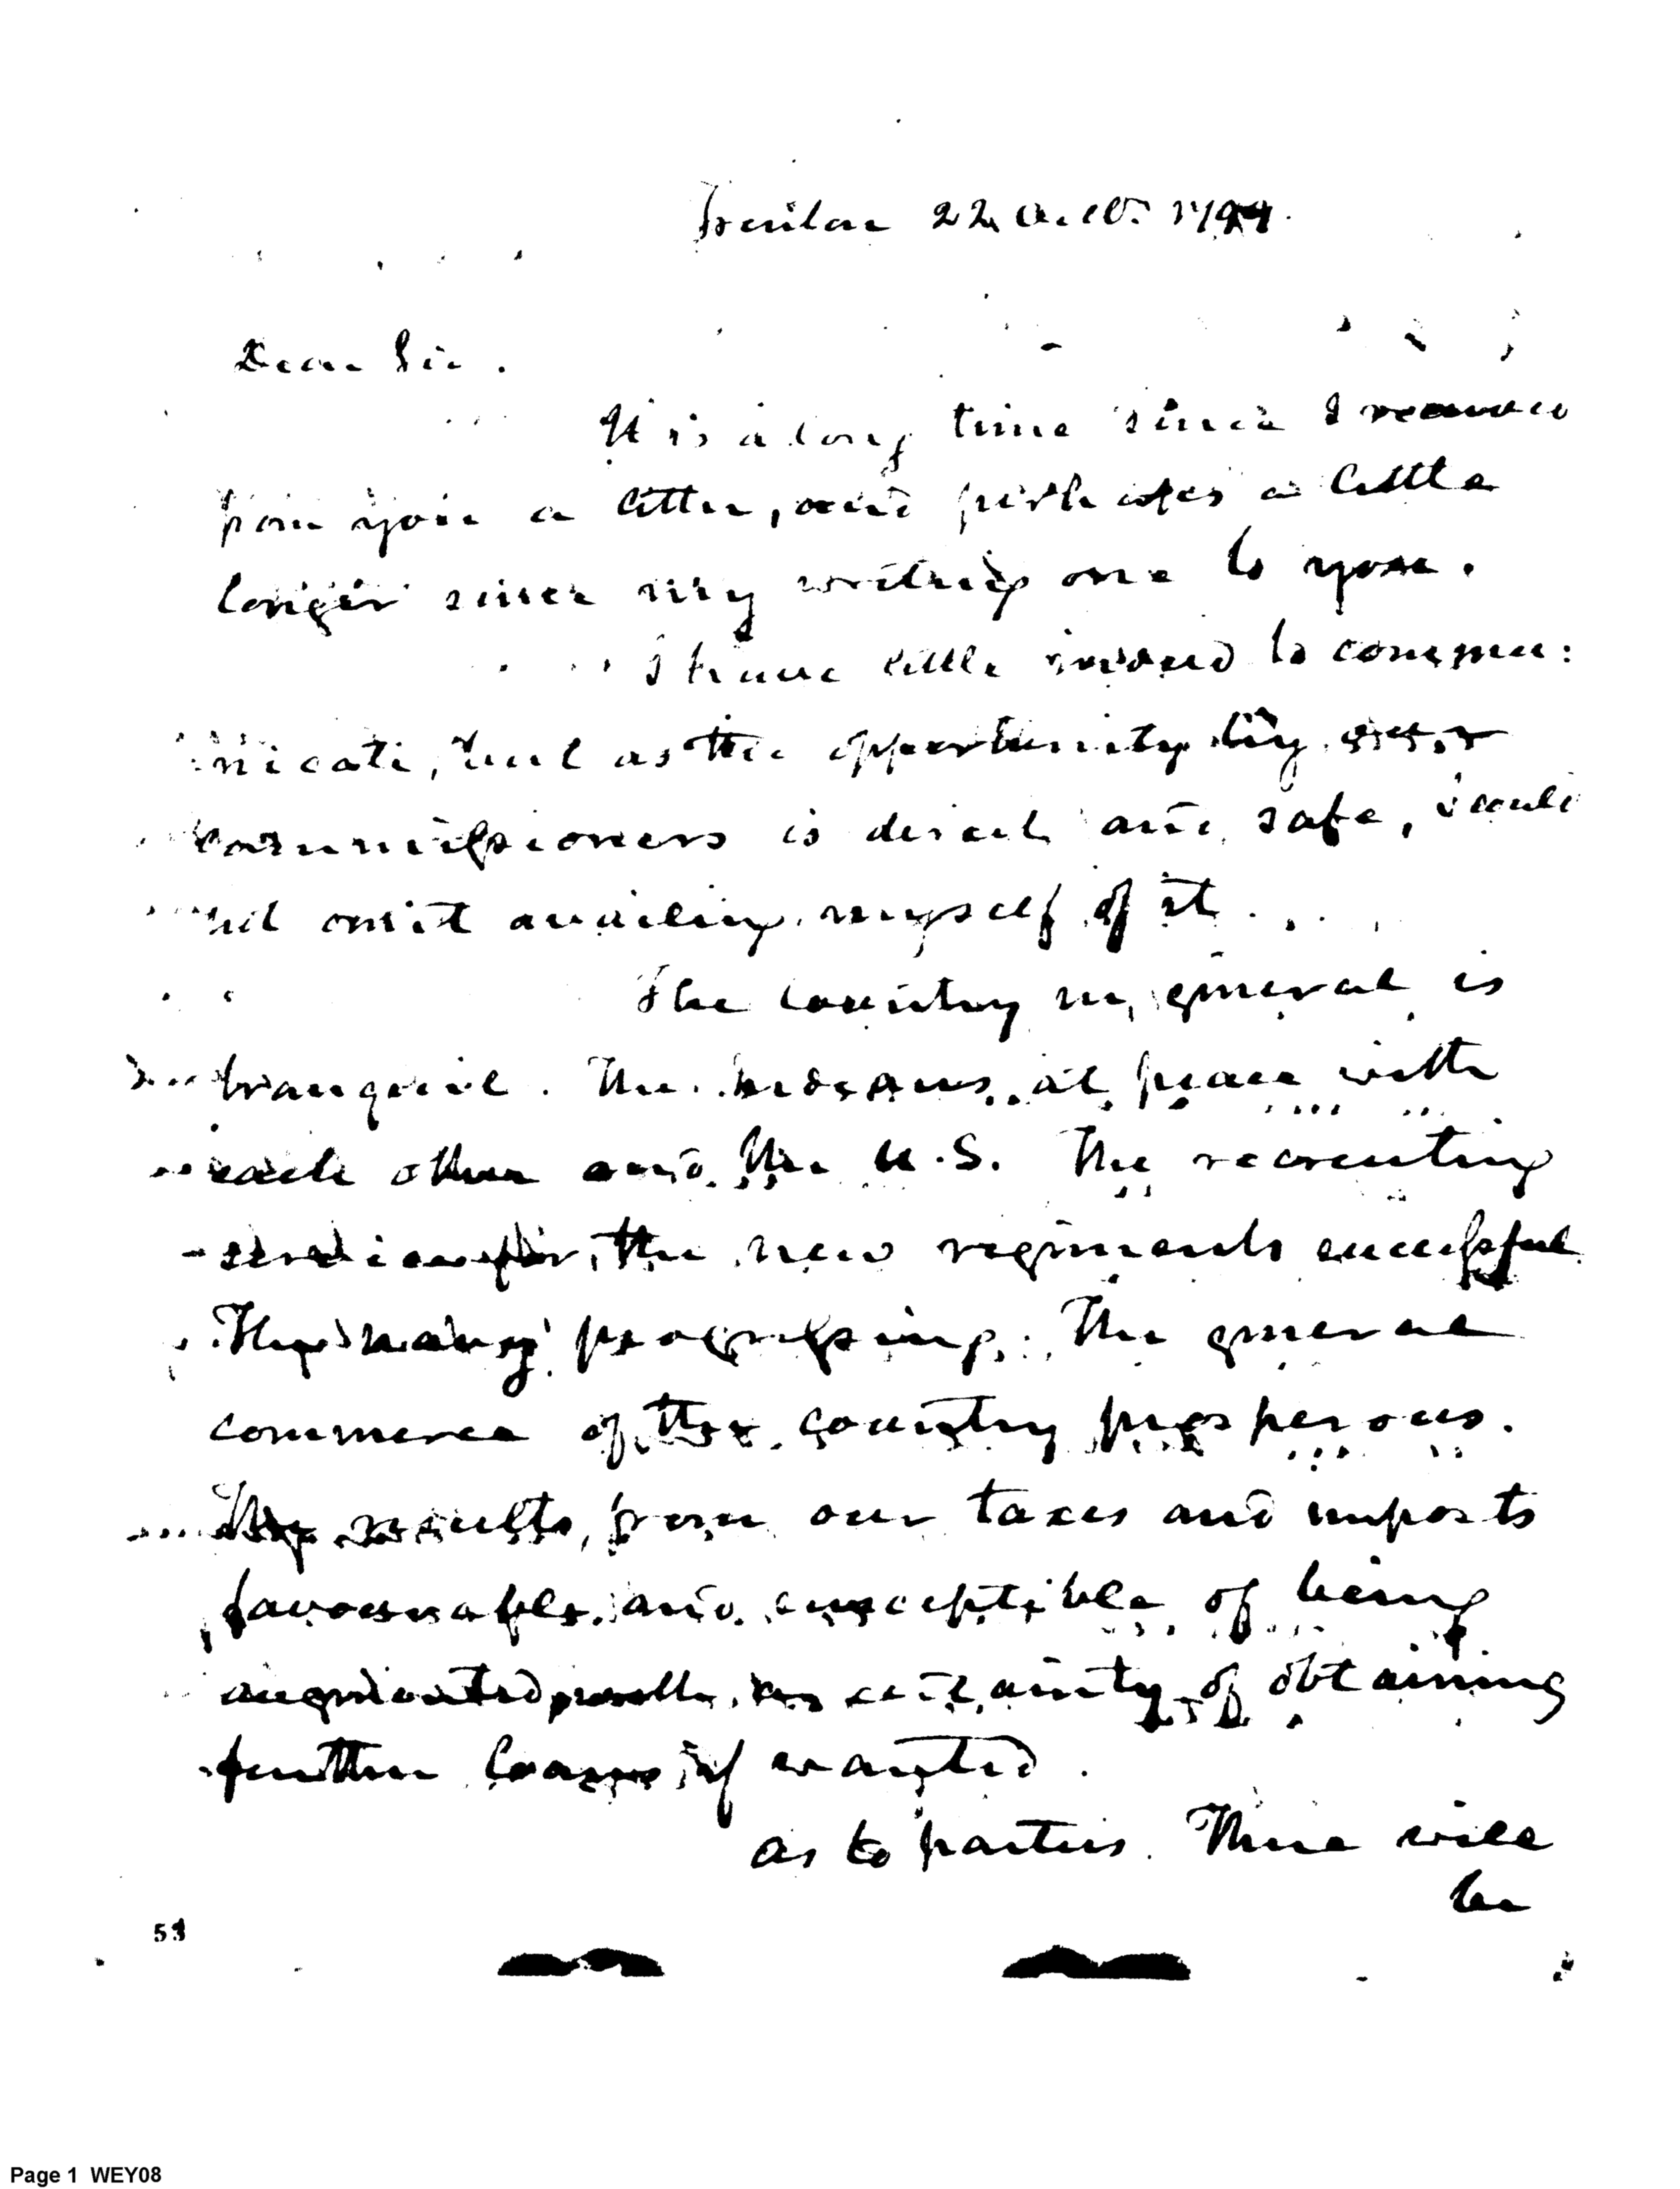 Trenton 22 Oct. 1799.
Dear Sir.
It is a long time since I received
from you a letter, and perhaps a little
longer since my writing one to you.
I have little indeed to commu:
nicate, but as the opportunity by our
commissioners is direct and safe, I could
not omit availing myself of it.
The country in general is
tranquil. The Indians at peace with
each other and the U.S. The recruiting
service for the new regiments successful
The navy progressing. The general
commerce of the country prosperous.
The results from our taxes and imposts
favourable and susceptible of being
augmented with certainty of obtaining
further loans if wanted.
As to parties. There will
be
53
Page 1 WEY08